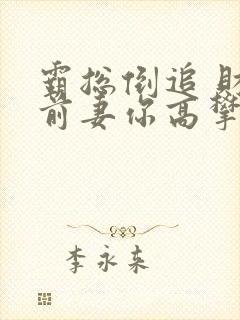 霸总倒追财
前妻你高攀
李永来